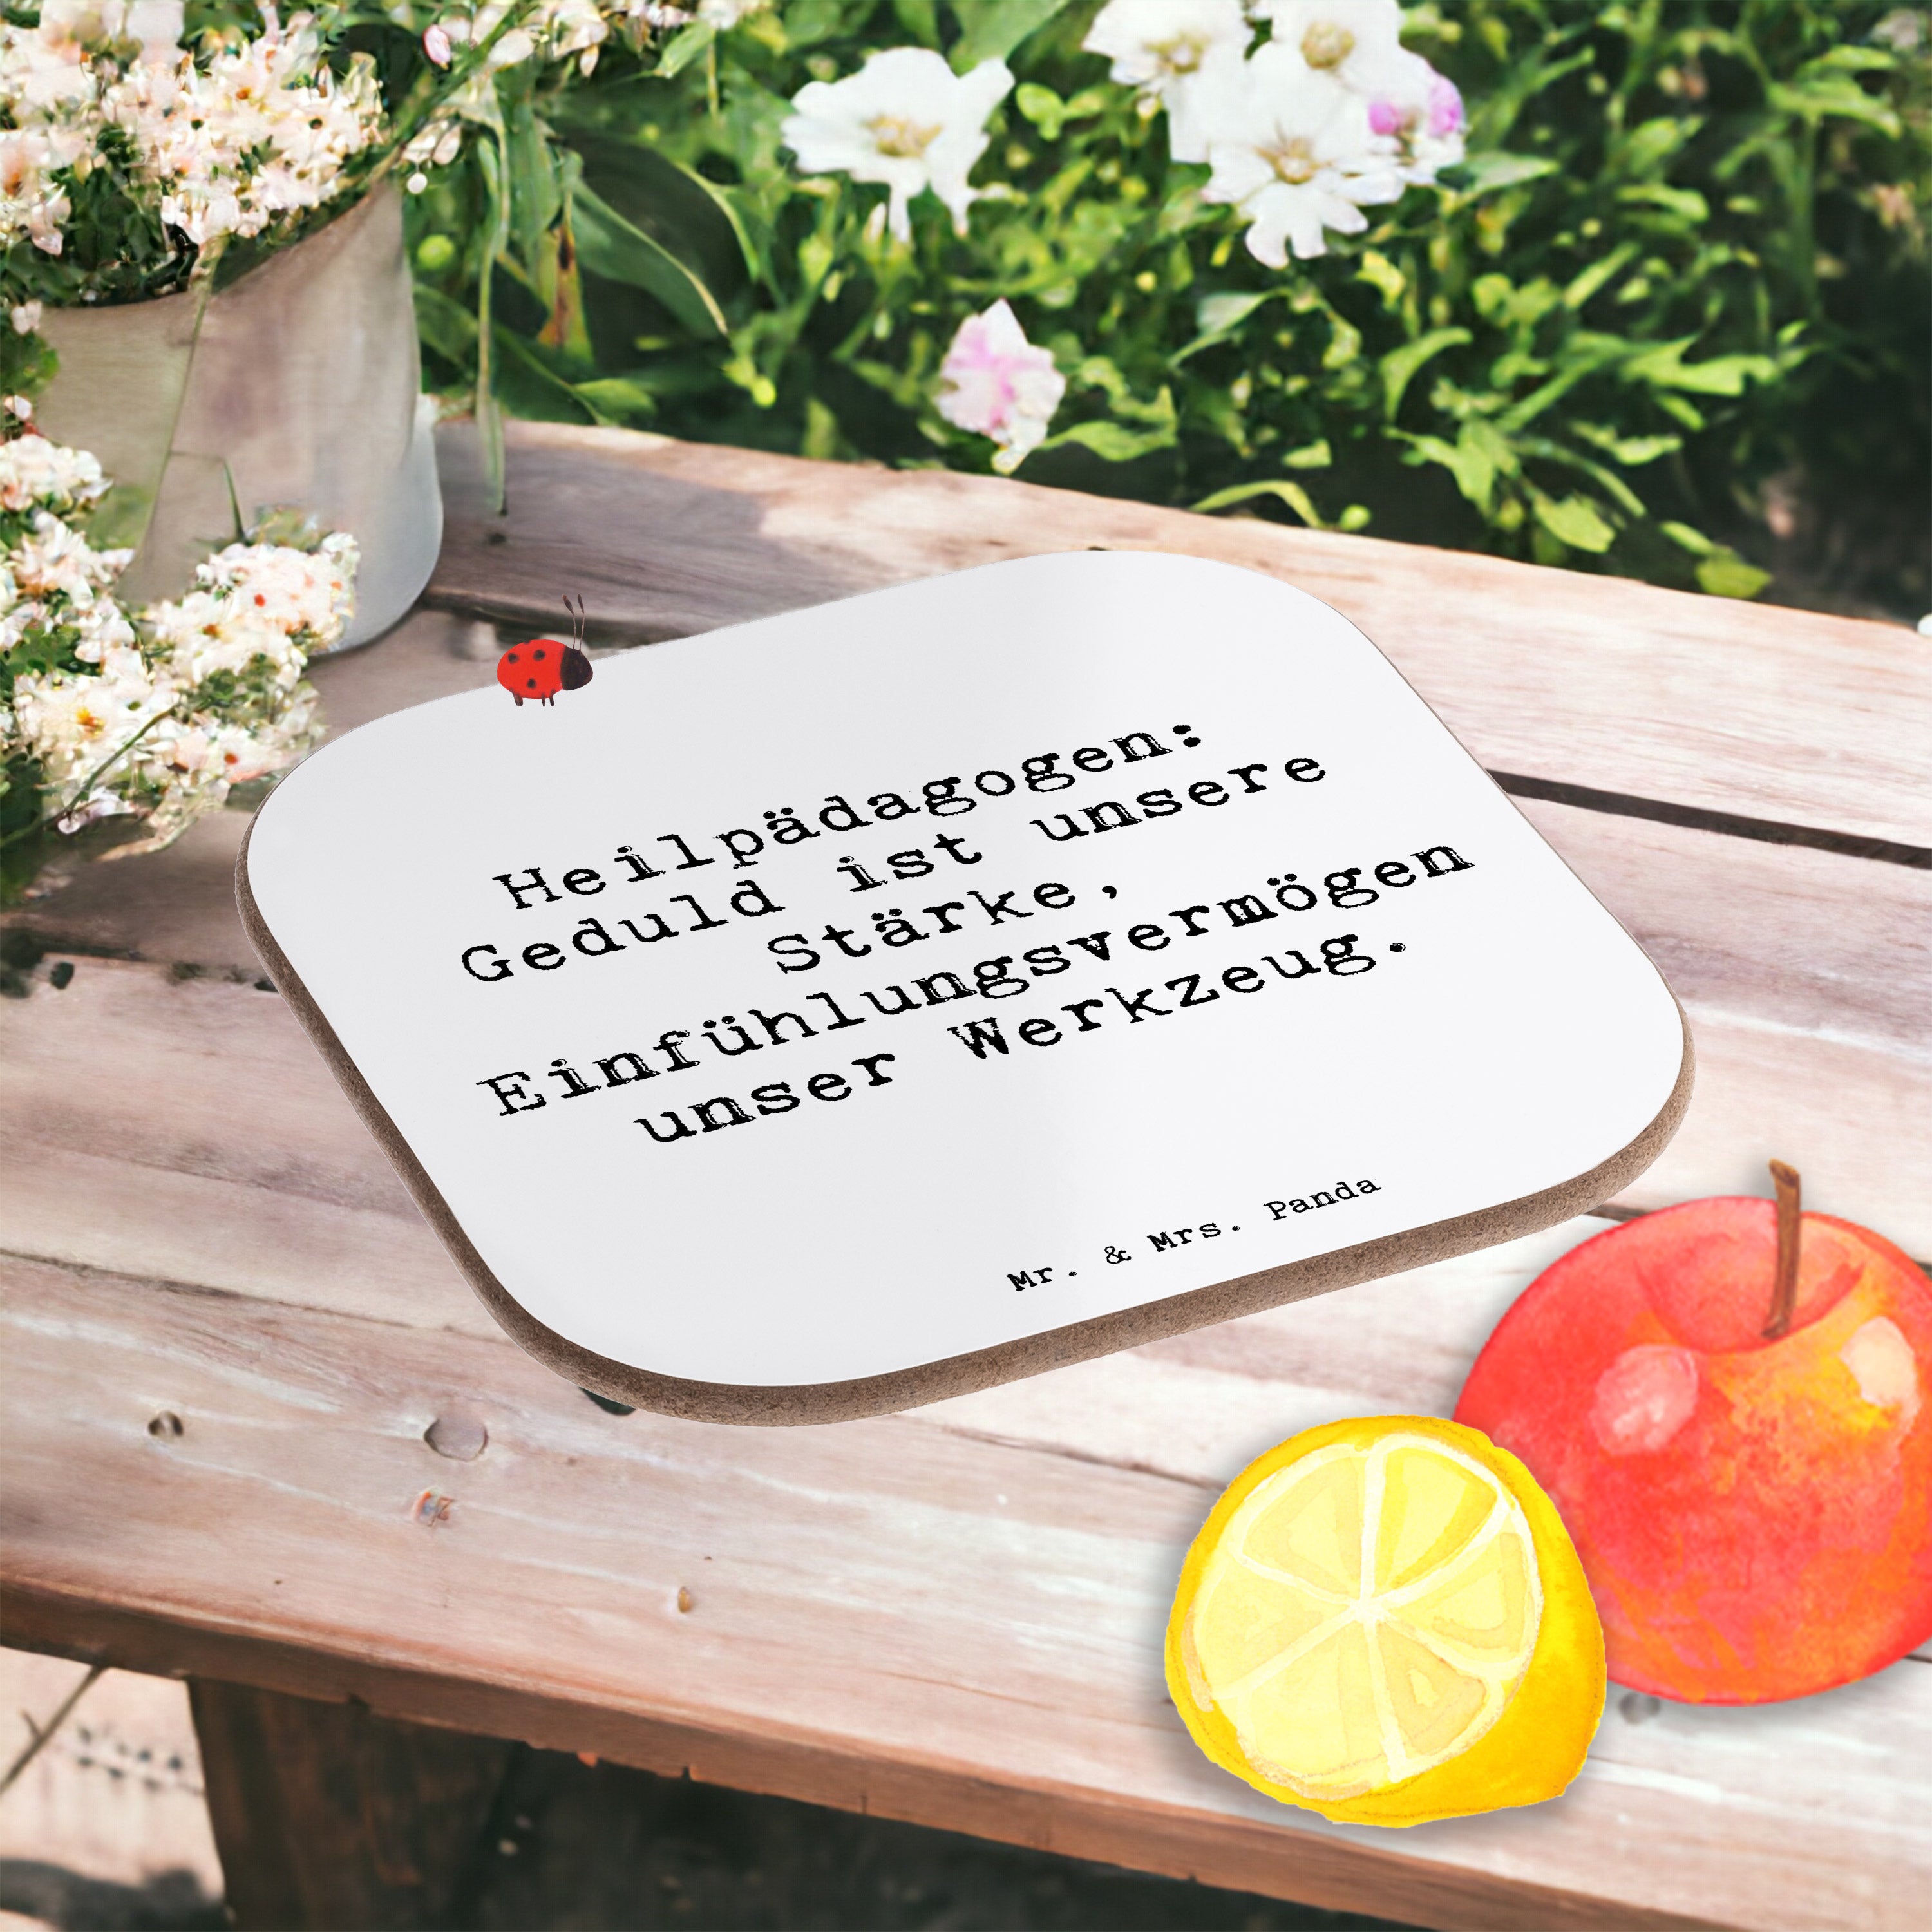 Heilpädagogen:
Geduld ist unsere
Stärke,
Einfühlungsvermögen
unser Werkzeug.
Mr. & Mrs. Panda